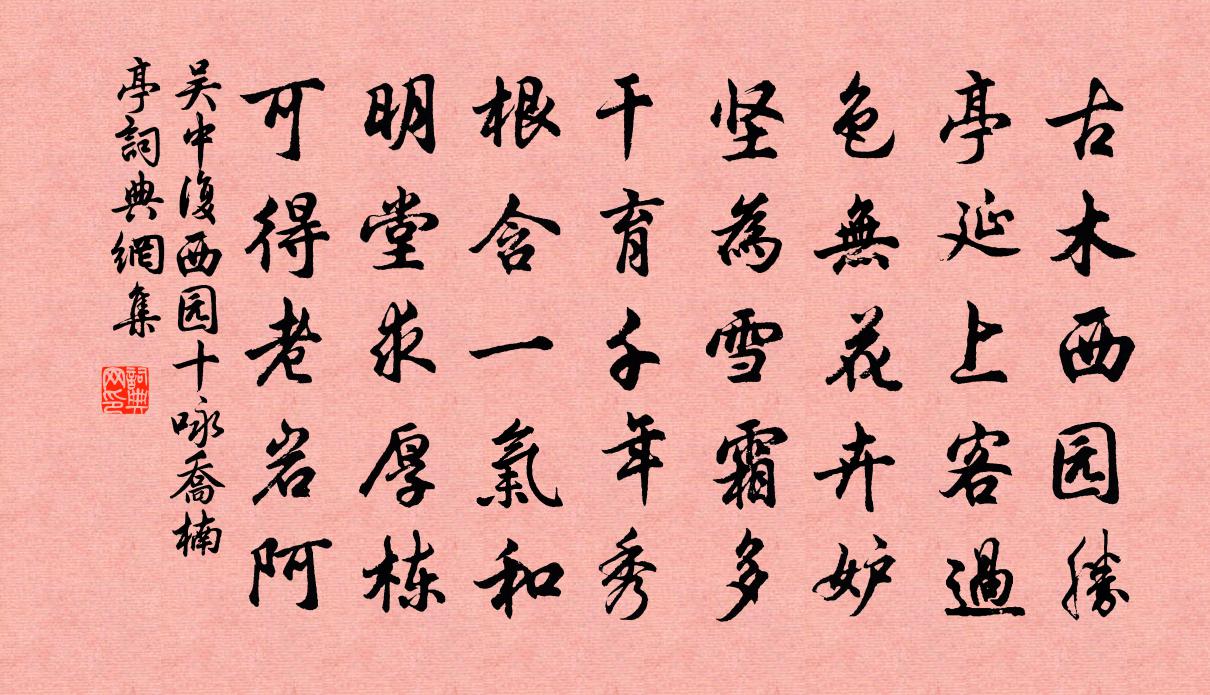 古木西园勝
亭延上客過
色無花卉妒
坚為雪霜多
干育千年秀
根含一氣和
明堂求厚栋
可得老岩阿
吴中復西园十咏喬楠
亭詞典網集
詞典网印